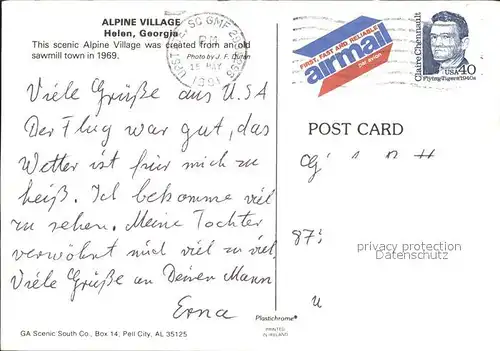 ALPINE VILLAGE
Helen, Georgia
This scenic Alpine Village was created from an old
sawmill town in 1969.
Photo by J. F.
SC GMF
15 MAY
1991
FIRST, FAST AND RELIABLE
airmail
par avion
Claire Chennault
USA 40
Flying Tigers, 1940s
Viele Grüße aus USA
Der Flug war gut, das
Wetter ist für mich zu
heiß. Ich bekomme viel
zu sehen. Meine Tochter
verwöhnt mich viel zu viel.
Viele Grüße an Deinen Mann
Erna
POST CARD
87
privacy protection
Datenschutz
Plastichrome®
PRINTED
IN IRELAND
GA Scenic South Co., Box 14, Pell City, AL 35125